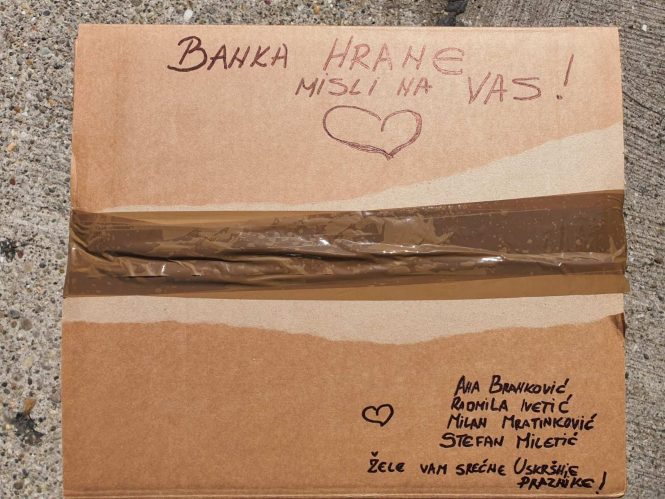 BANKA HRANE
MISLI NA VAS!
Ana Branković
Radmila Ivetić
Milan Mratinković
Stefan Miletić
Žele vam srećne Uskršnje
praznike!